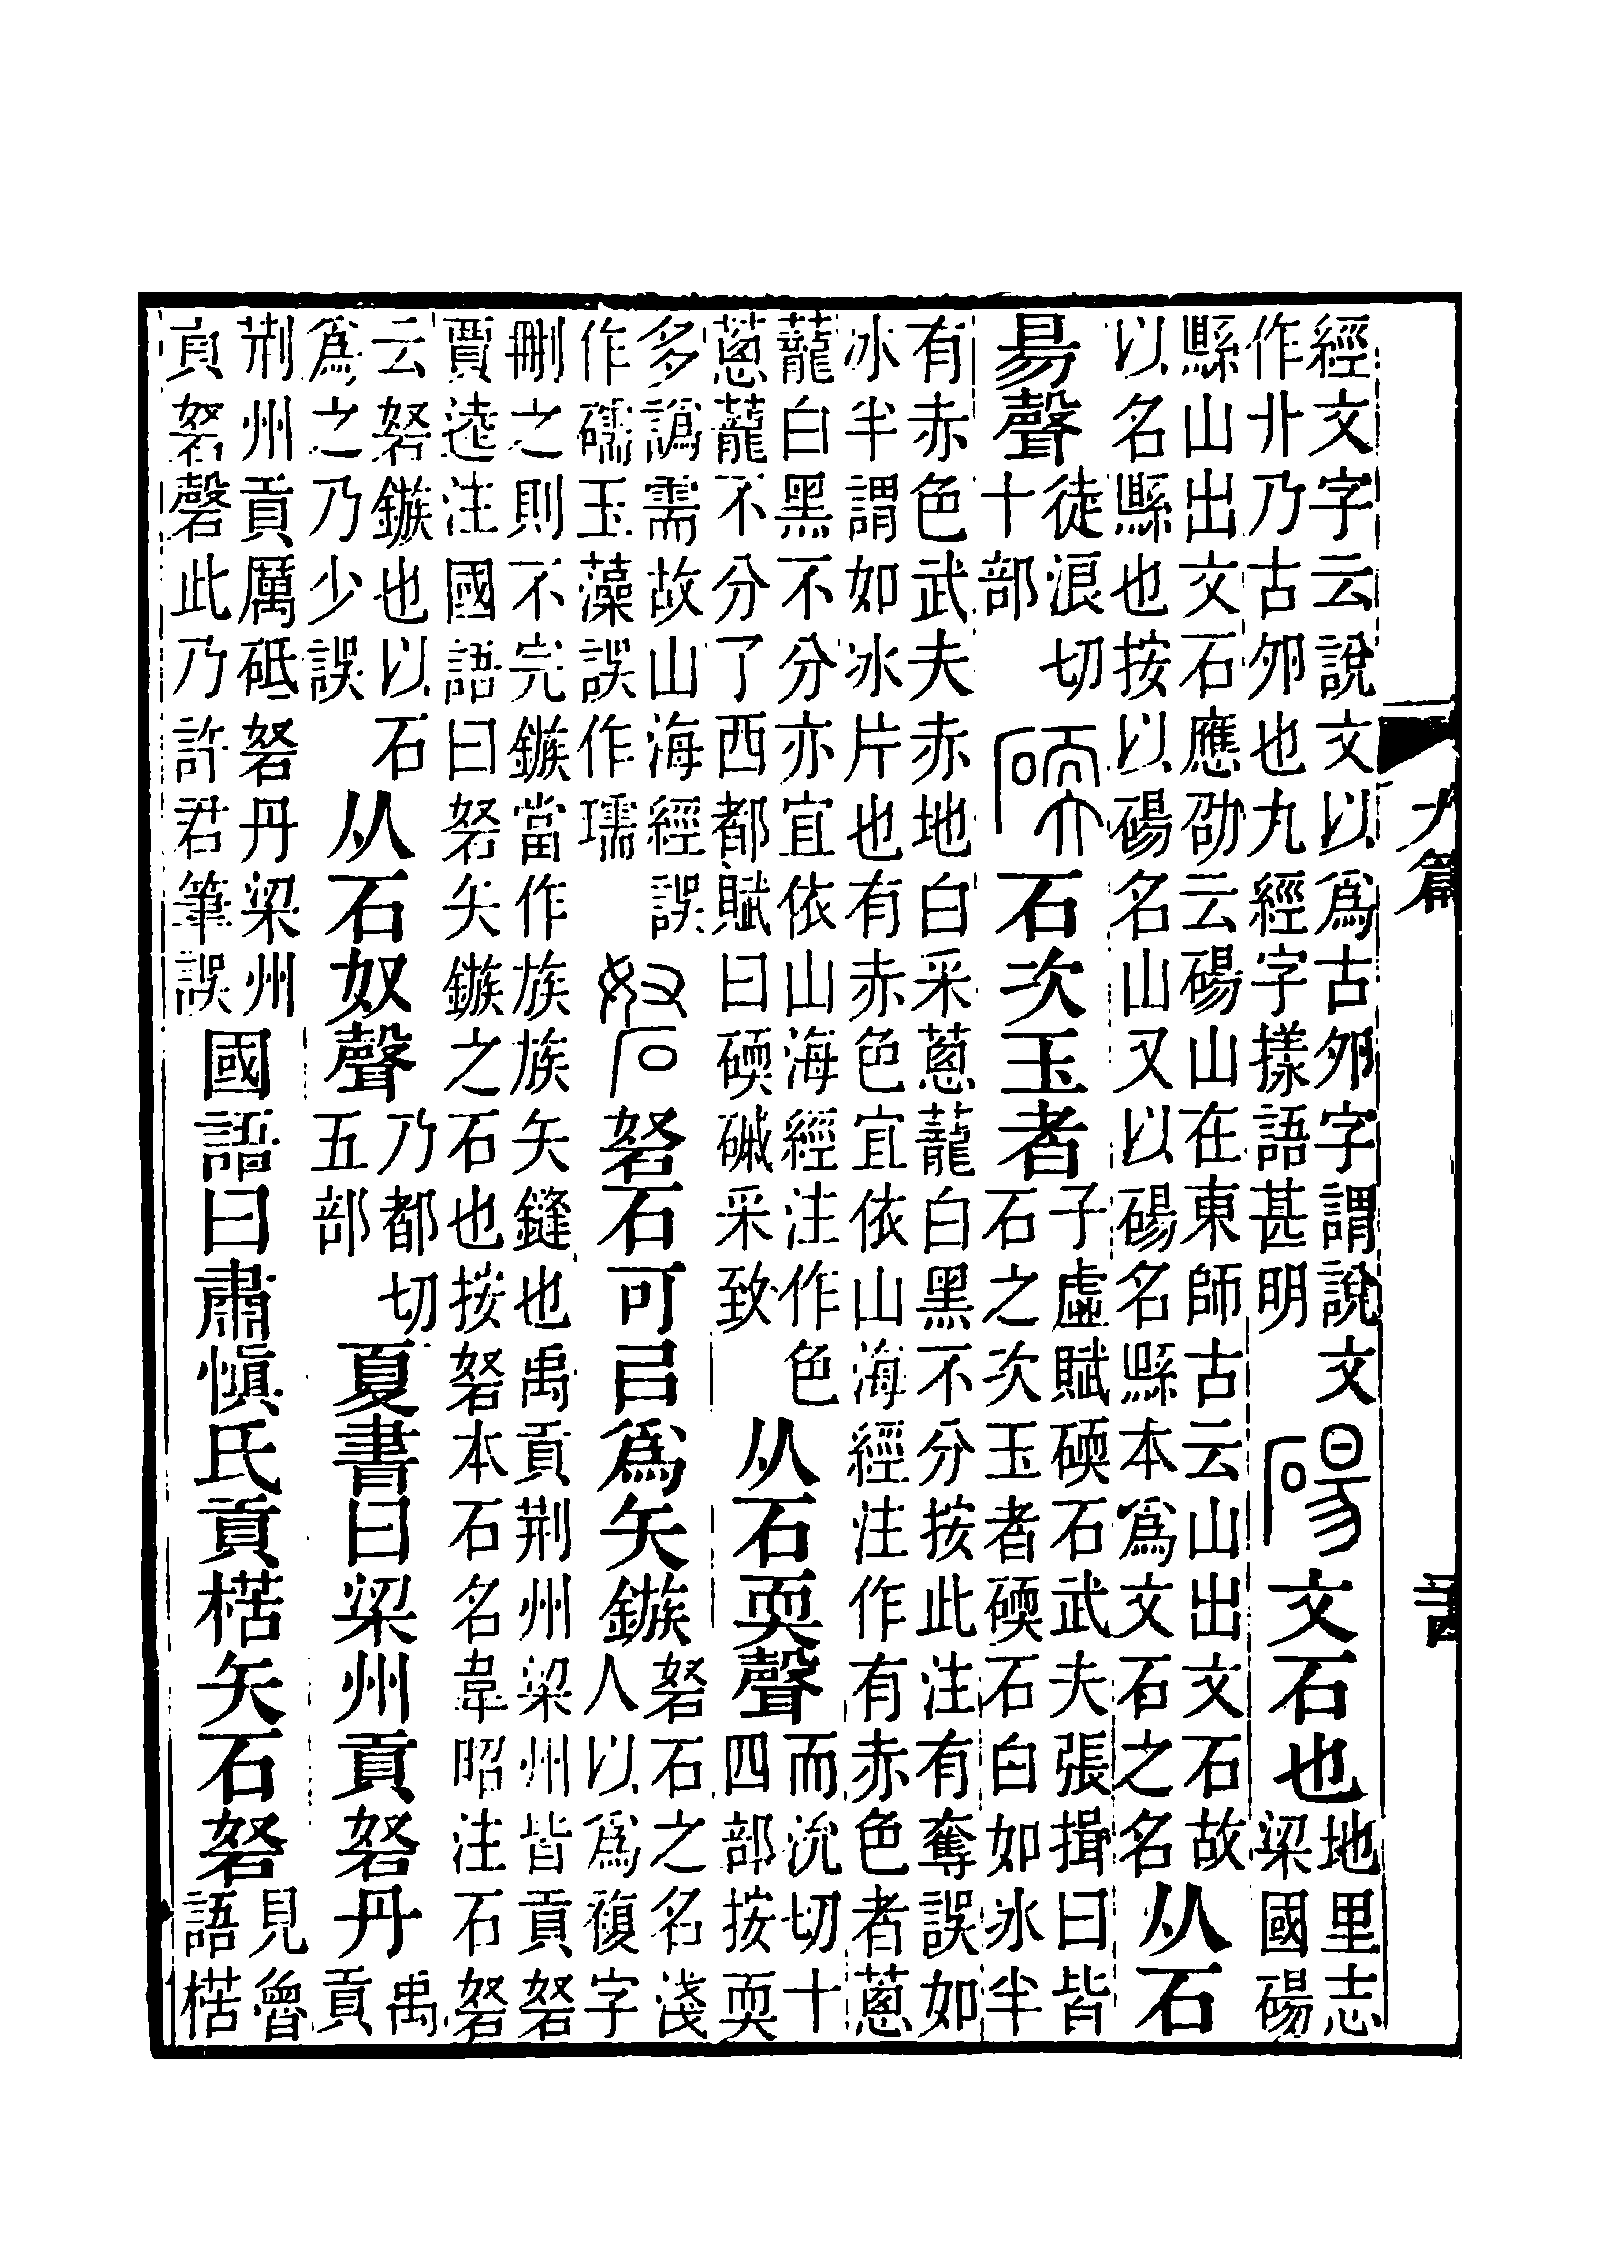 九篇
經文字云說文以爲古夘字謂說文
作丱乃古夘也九經字樣語甚明
碭
文石也
地里志
梁國碭
縣山出文石應劭云碭山在東師古云山出文石故
以名縣也按以碭名山又以碭名縣本爲文石之名
从石
昜聲
徒浪切
十部
碝
石次玉者
子虛賦碝石武夫張揖曰皆
石之次玉者碝石白如冰半
有赤色武夫赤地白采蔥蘢白黑不分按此注有奪誤如
冰半謂如冰片也有赤色宜依山海經注作有赤色者蔥
蘢白黑不分亦宜依山海經注作色
蔥蘢不分了西都賦曰碝磩采致
从石耎聲
而沇切十
四部按耎
多譌需故山海經誤
作礝玉藻誤作瓀
砮
砮石可㠯爲矢鏃
砮石之名淺
人以爲複字
刪之則不完鏃當作族族矢鏠也禹貢荆州梁州皆貢砮
賈逵注國語曰砮矢鏃之石也按砮本石名韋昭注石砮
云砮鏃也以石
爲之乃少誤
从石奴聲
乃都切
五部
夏書曰梁州貢砮丹
禹
貢
荆州貢厲砥砮丹梁州
貢砮磬此乃許君筆誤
國語曰肅愼氏貢楛矢石砮
見魯
語楛